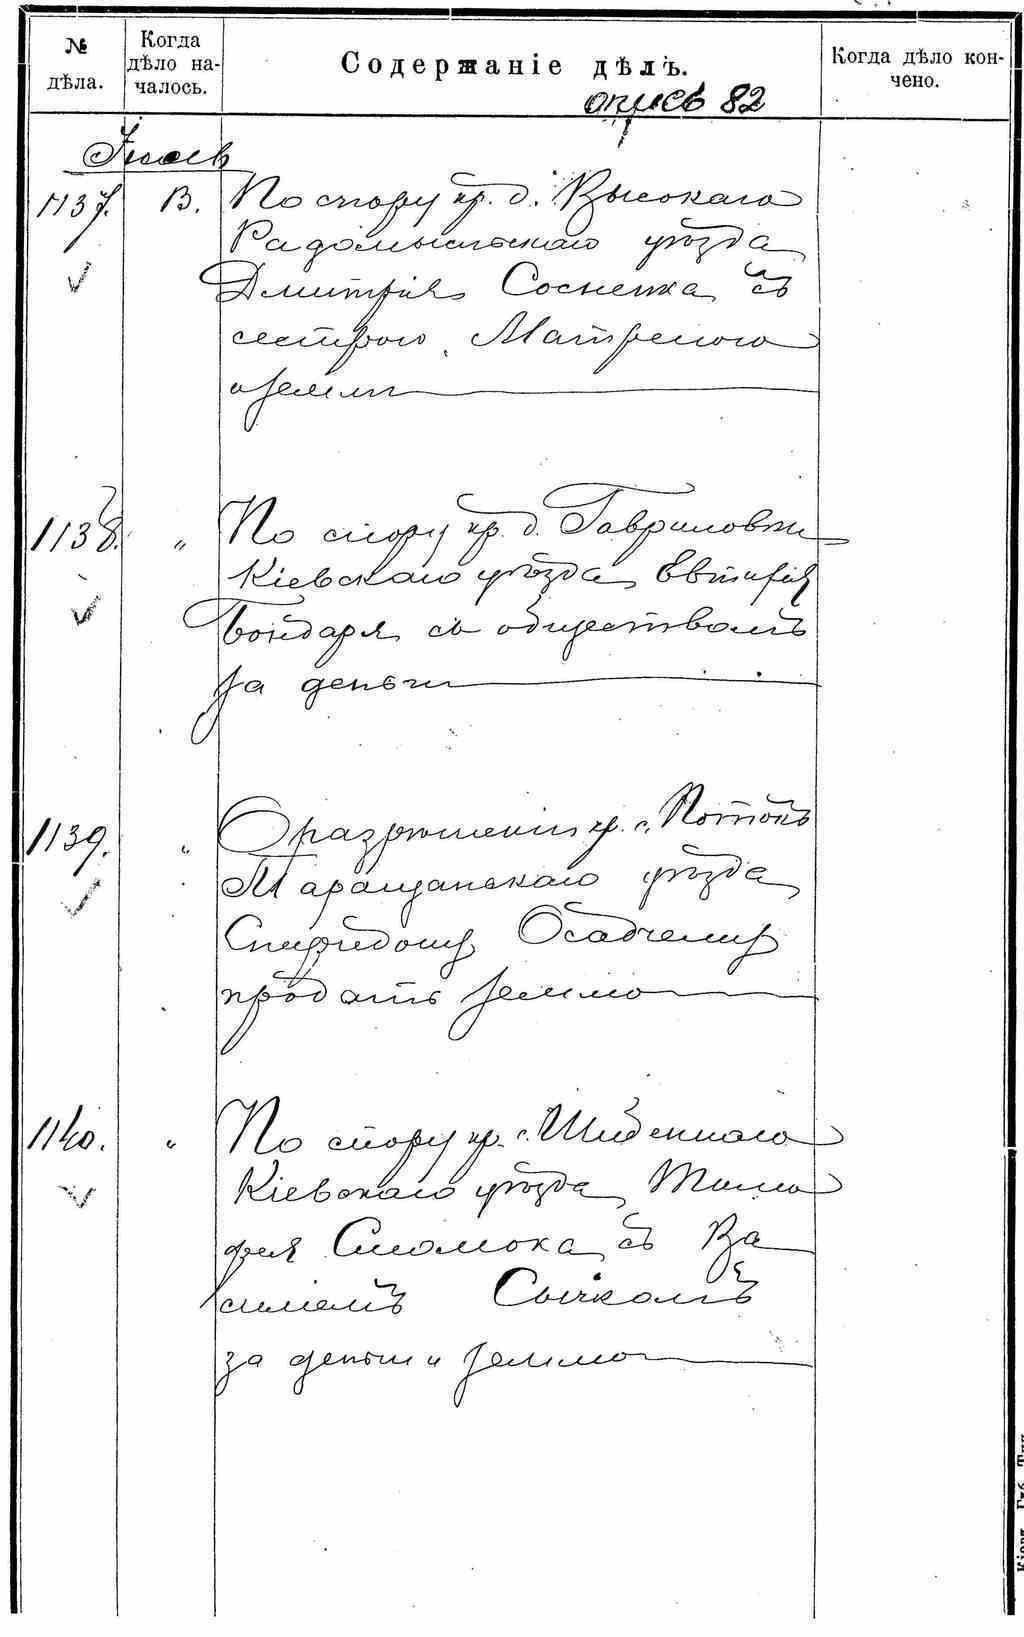 № дѣла.
Когда дѣло на-
чалось.
Содержаніе дѣлъ.
Когда дѣло кон-
чено.
опись 82
1137. В. По спору кр. д. Высокаго
Радомысльскаго уѣзда
Дмитрія Сосненка съ
сестрою Матреною
о земли
1138. " По спору кр. д. Гавриловки
Кіевскаго уѣзда Евтифія
Бондаря съ обществомъ
за деньги
1139. " О разрѣшеніи кр. с. Потокъ
Таращанскаго уѣзда
Спиридону Осадчему
продать землю
1140. " По спору кр. с.
Кіевскаго уѣзда Тимо
фея с Ва
силіемъ Сычкомъ
за деньги и землю